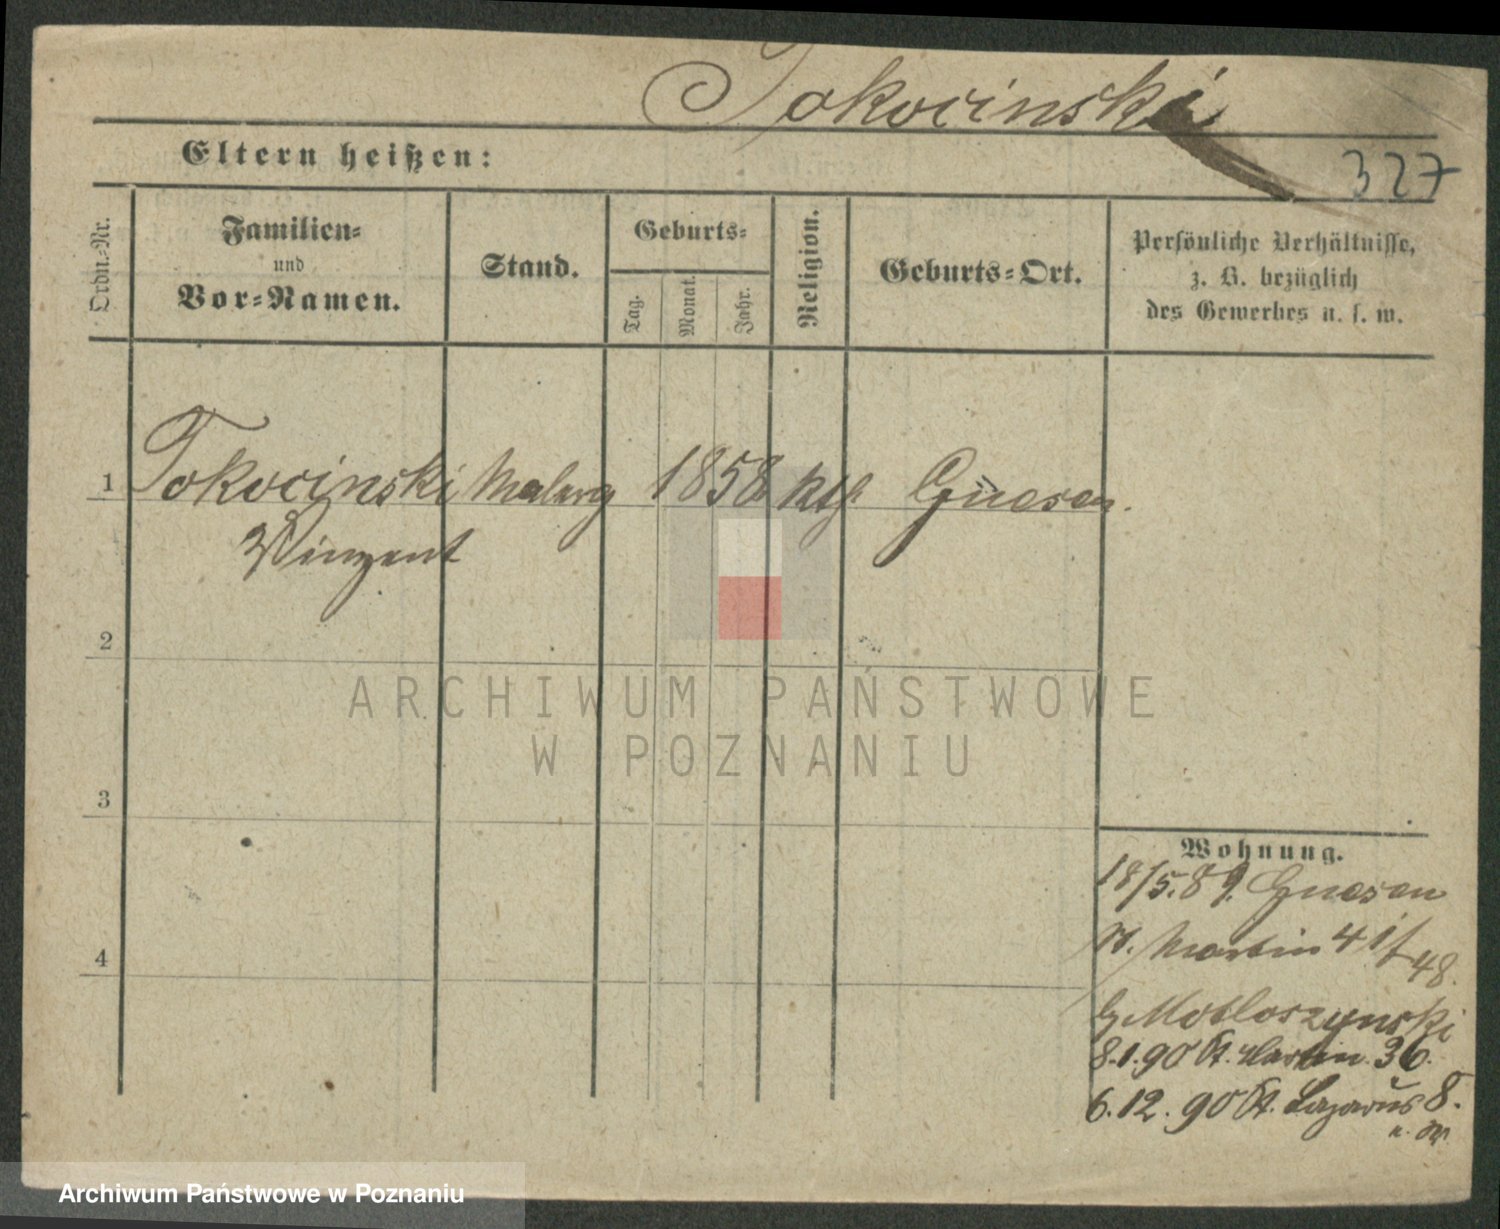 Tokocinski
Eltern heißen:
327
Ordn.-Nr.
Familien-
und
Vor-Namen.
Stand.
Geburts-
Tag.
Monat.
Jahr.
Religion.
Geburts-Ort.
Persönliche Verhältnisse,
z. B. bezüglich
des Gewerbes u. s. w.
1 Tokocinski Malerg 1858 kth Gnesen.
Vinzent
2
3
4
ARCHIWUM PAŃSTWOWE
W POZNANIU
Wohnung.
18/5.89. Gnesen
St. Martin 41/48.
b/ Motloszynski
8.1.90 St. Martin 36.
6.12.90 St. Lazarus 8.
Archiwum Państwowe w Poznaniu